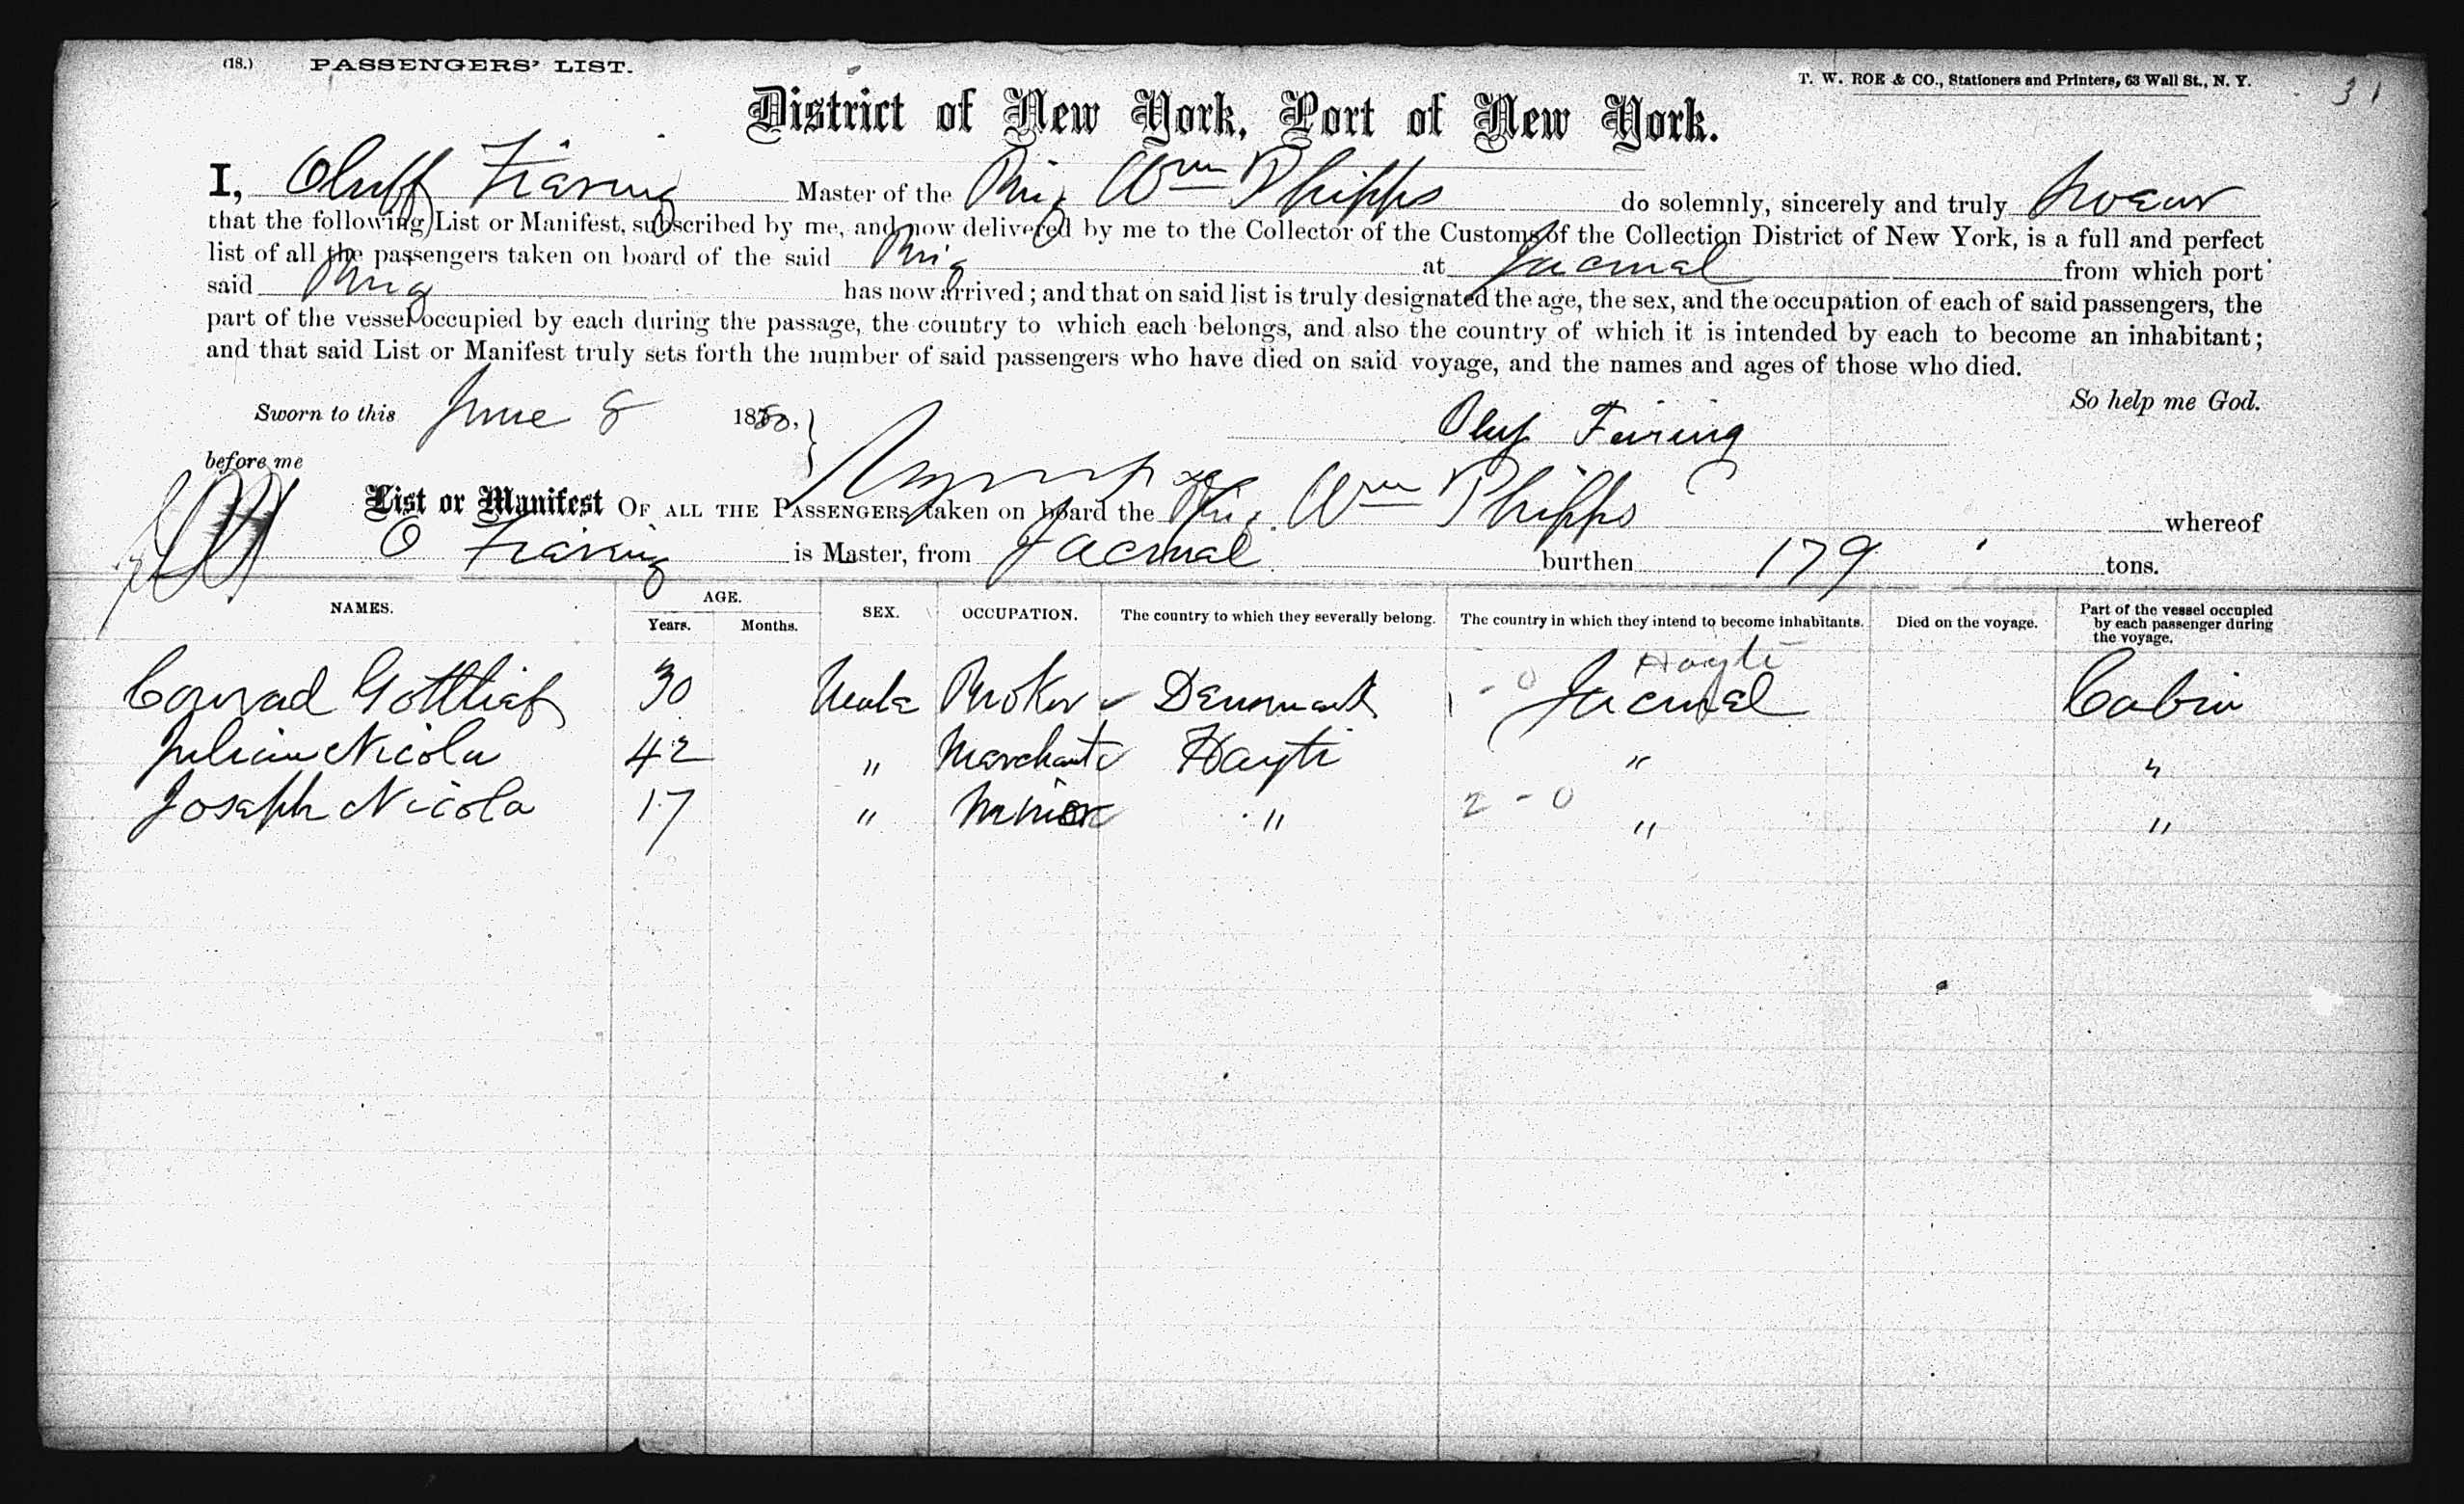 (18.) PASSENGERS' LIST.
T. W. ROE & CO., Stationers and Printers, 63 Wall St., N. Y.
31
District of New York, Port of New York.
I, Oluff Fiaring Master of the Brig Wm Phipps do solemnly, sincerely and truly swear
that the following List or Manifest, subscribed by me, and now delivered by me to the Collector of the Customs of the Collection District of New York, is a full and perfect
list of all the passengers taken on board of the said Brig at Jacmal from which port
said Brig has now arrived; and that on said list is truly designated the age, the sex, and the occupation of each of said passengers, the
part of the vessel occupied by each during the passage, the country to which each belongs, and also the country of which it is intended by each to become an inhabitant;
and that said List or Manifest truly sets forth the number of said passengers who have died on said voyage, and the names and ages of those who died.
So help me God.
Sworn to this June 8 1880,
Oluf Fairing
before me
List or Manifest OF ALL THE PASSENGERS taken on board the Brig Wm Phipps whereof
O Fiaring is Master, from Jacmal burthen 179 tons.
NAMES. AGE. Years. Months. SEX. OCCUPATION. The country to which they severally belong. The country in which they intend to become inhabitants. Died on the voyage. Part of the vessel occupied by each passenger during the voyage.
Hayti
Conrad Gottlief 30 Male Broker Denmark 1 - 0 Jacmel Cabin
Julian Nicola 42 " Merchant Hayti " "
Joseph Nicola 17 " Minor " 2 - 0 " "